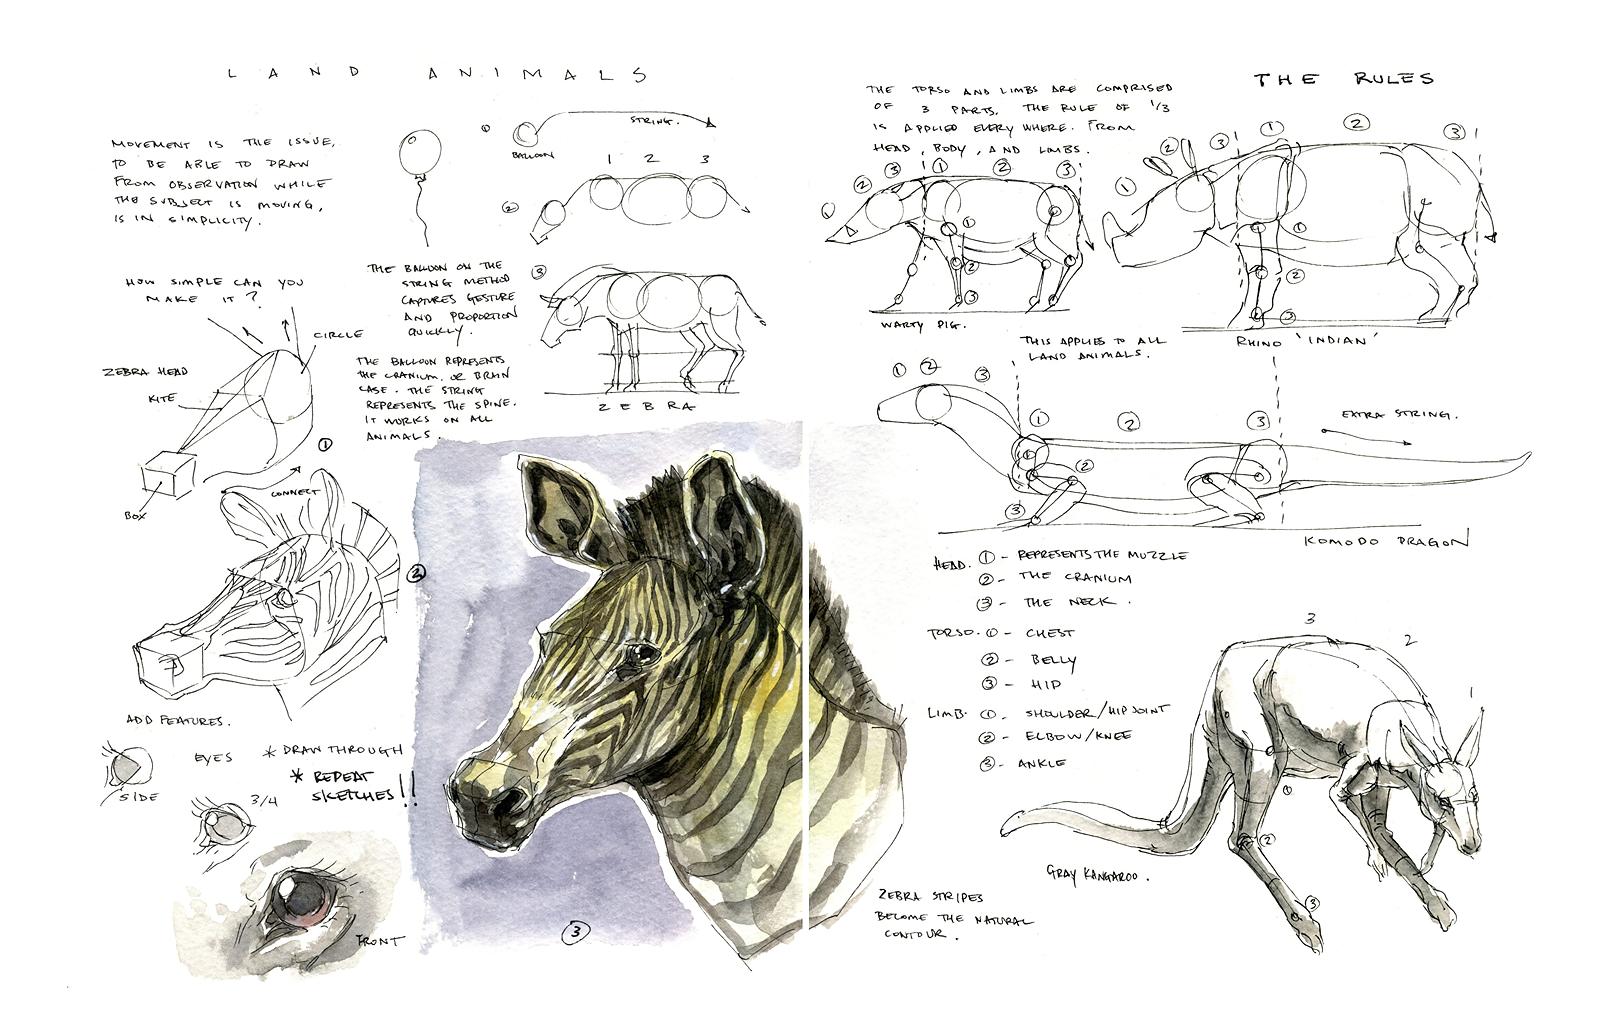 LAND ANIMALS
MOVEMENT IS THE ISSUE,
TO BE ABLE TO DRAW
FROM OBSERVATION WHILE
THE SUBJECT IS MOVING,
IS IN SIMPLICITY.
1
STRING.
BALLOON
1 2 3
2
HOW SIMPLE CAN YOU
MAKE IT?
CIRCLE
ZEBRA HEAD
KITE
BOX
1
CONNECT
THE BALLOON ON THE
STRING METHOD
CAPTURES GESTURE
AND PROPORTION
QUICKLY.
THE BALLOON REPRESENTS
THE CRANIUM, OR BRAIN
CASE. THE STRING
REPRESENTS THE SPINE.
IT WORKS ON ALL
ANIMALS.
3
ZEBRA
2
ADD FEATURES.
EYES
SIDE
3/4
FRONT
* DRAW THROUGH
* REPEAT
SKETCHES!!
3
THE RULES
THE TORSO AND LIMBS ARE COMPRISED
OF 3 PARTS. THE RULE OF 1/3
IS APPLIED EVERY WHERE. FROM
HEAD, BODY, AND LIMBS.
1 2 3 1 2 3
1
2
3
WARTY PIG.
1 2 3 1 2 3
1
2
3
RHINO 'INDIAN'
THIS APPLIES TO ALL
LAND ANIMALS.
1 2 3
1 2 3
EXTRA STRING.
1
2
3
KOMODO DRAGON
HEAD. 1 - REPRESENTS THE MUZZLE
2 - THE CRANIUM
3 - THE NECK.
TORSO. 1 - CHEST
2 - BELLY
3 - HIP
LIMB. 1 - SHOULDER/HIP JOINT
2 - ELBOW/KNEE
3 - ANKLE
3 2 1
1
2
3
GRAY KANGAROO.
ZEBRA STRIPES
BECOME THE NATURAL
CONTOUR.